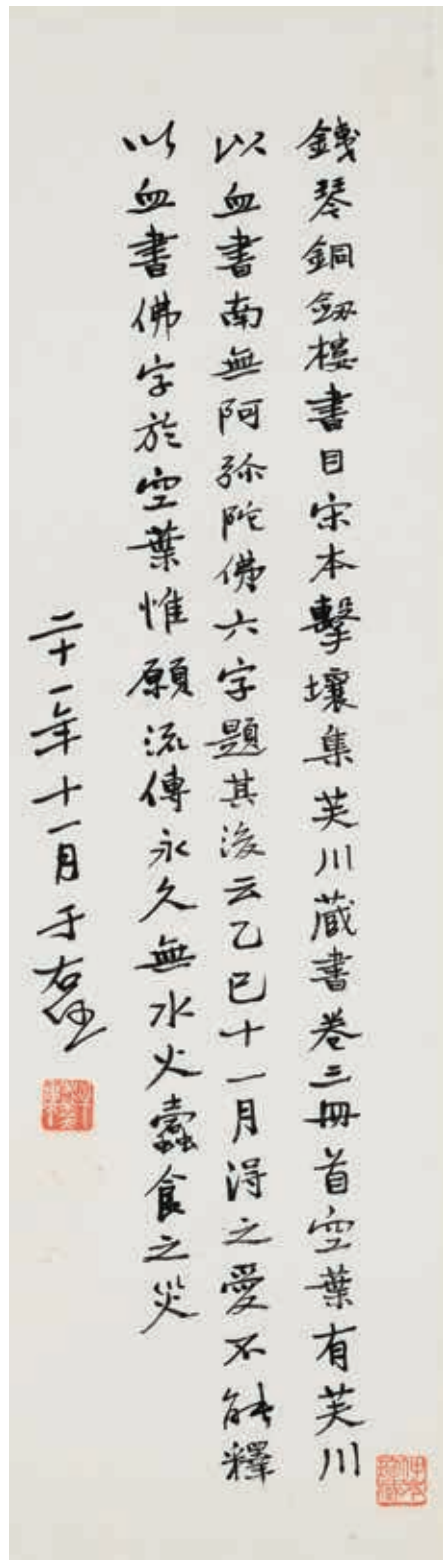 鐵琴銅劍樓書目宋本擊壤集芙川藏書卷三冊首空葉有芙川
以血書南無阿弥陀佛六字題其後云乙巳十一月得之愛不能釋
以血書佛字於空葉惟願流傳永久無水火蠹食之災
二十一年十一月于右任